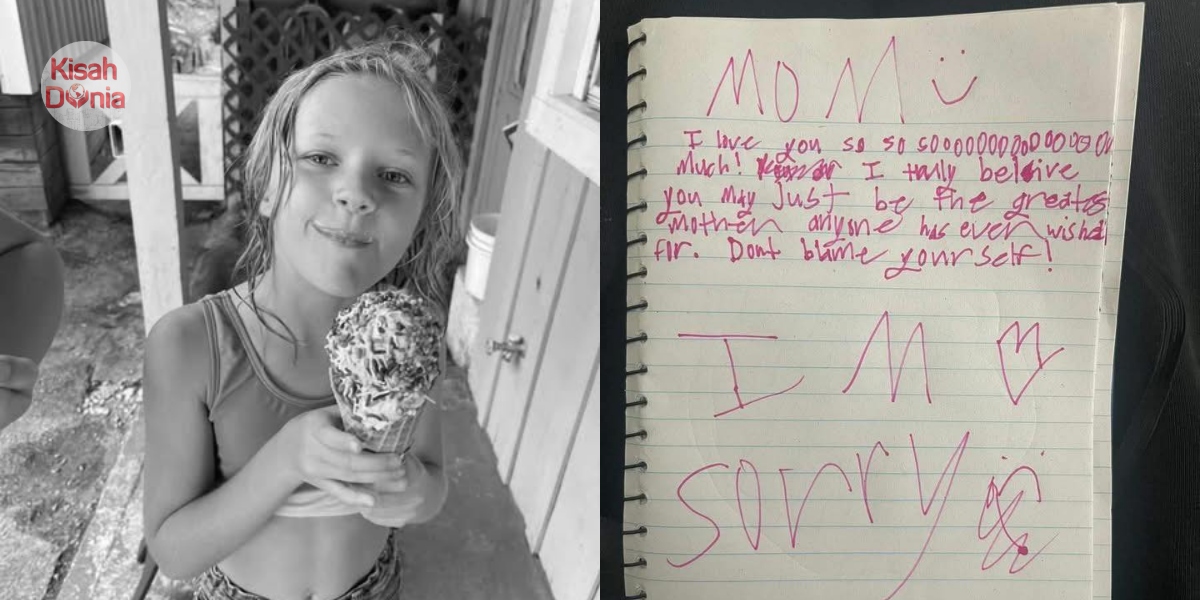 Kisah
Dunia
MOM
I love you so so soooooooooooooooo
much! I truly belive
you may just be the greates
mother anyone has ever wished
for. Dont blame yourself!
I M
sorry